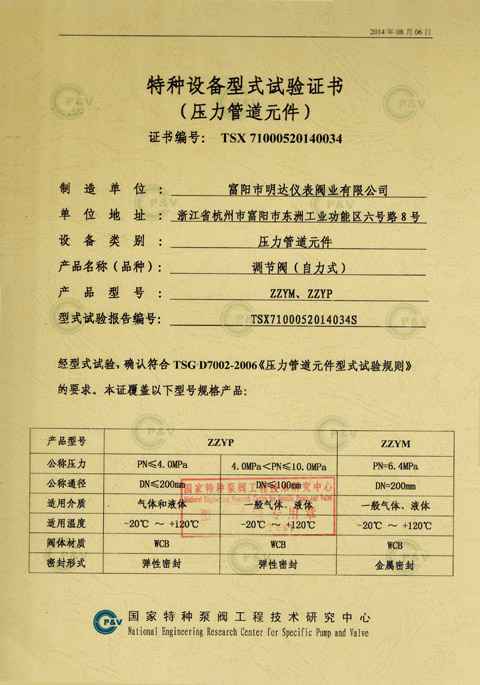 2014年08月06日
特种设备型式试验证书
（压力管道元件）
证书编号： TSX 71000520140034
制造单位： 富阳市明达仪表阀业有限公司
单位地址： 浙江省杭州市富阳市东洲工业功能区六号路8号
设备类别： 压力管道元件
产品名称（品种）： 调节阀（自力式）
产品型号： ZZYM、ZZYP
型式试验报告编号： TSX7100052014034S
经型式试验，确认符合 TSG D7002-2006《压力管道元件型式试验规则》
的要求。本证覆盖以下型号规格产品：
产品型号 ZZYP ZZYM
公称压力 PN≤4.0MPa 4.0MPa＜PN≤10.0MPa PN=6.4MPa
公称通径 DN≤200mm DN≤100mm DN=200mm
适用介质 气体和液体 一般气体、液体 一般气体、液体
适用温度 -20℃ ～ +120℃ -20℃ ～ +120℃ -20℃ ～ +120℃
阀体材质 WCB WCB WCB
密封形式 弹性密封 弹性密封 金属密封
国家特种泵阀工程技术研究中心
P&V 国家特种泵阀工程技术研究中心
National Engineering Research Center for Specific Pump and Valve